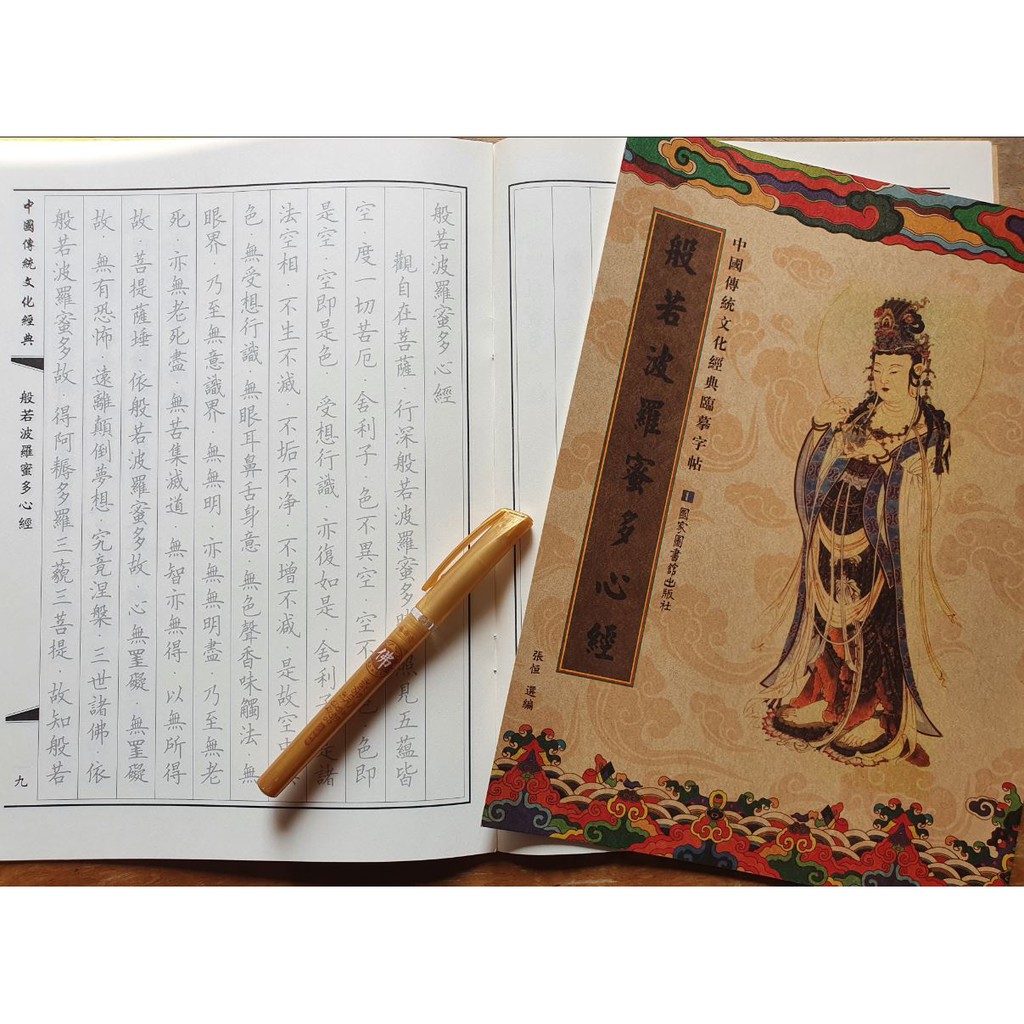 般若波羅蜜多心經
觀自在菩薩·行深般若波羅蜜多 照見五蘊皆
空·度一切苦厄·舍利子·色不異空·空不 色·色即
是空·空即是色·受想行識·亦復如是·舍利子 是諸
法空相·不生不滅·不垢不净·不增不減·是故空中
色·無受想行識·無眼耳鼻舌身意·無色聲香味觸法·無
眼界·乃至無意識界·無無明·亦無無明盡·乃至無老
死·亦無老死盡·無苦集滅道·無智亦無得·以無所得
故·菩提薩埵·依般若波羅蜜多故·心無罣礙·無罣礙
故·無有恐怖·遠離顛倒夢想·究竟涅槃·三世諸佛·依
般若波羅蜜多故·得阿耨多羅三藐三菩提·故知般若
中國傳統文化經典
般若波羅蜜多心經
九
佛
中國傳統文化經典臨摹字帖
1 國家圖書館出版社
般若波羅蜜多心經
張恒 選編